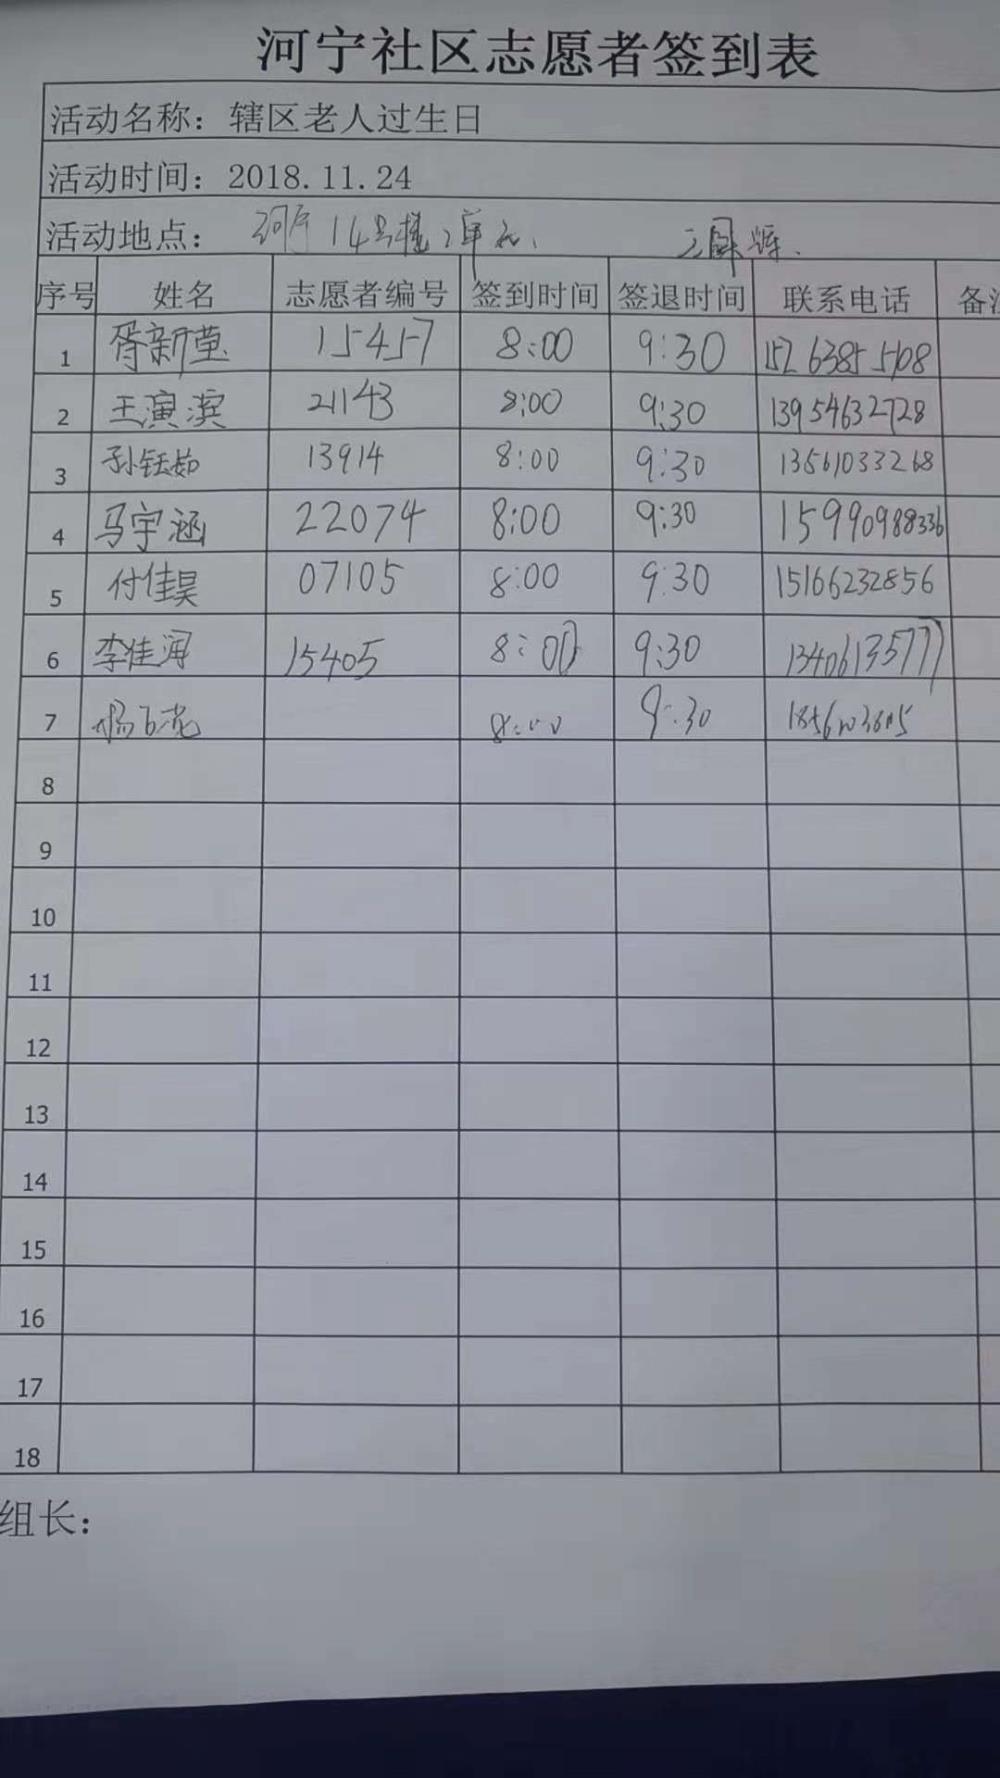 河宁社区志愿者签到表
活动名称：辖区老人过生日
活动时间：2018.11.24
活动地点： 河宁14号楼2单元、
序号 姓名 志愿者编号 签到时间 签退时间 联系电话 备注
1 胥新莹 15457 8:00 9:30 15263855108
2 王演滨 21143 8:00 9:30 13954632728
3 孙钰茹 13914 8:00 9:30 13561033268
4 马宇涵 22074 8:00 9:30 15990988336
5 付佳昊 07105 8:00 9:30 15166232856
6 李佳润 15405 8:00 9:30 13406135777
7 8:00 9:30
8
9
10
11
12
13
14
15
16
17
18
组长：